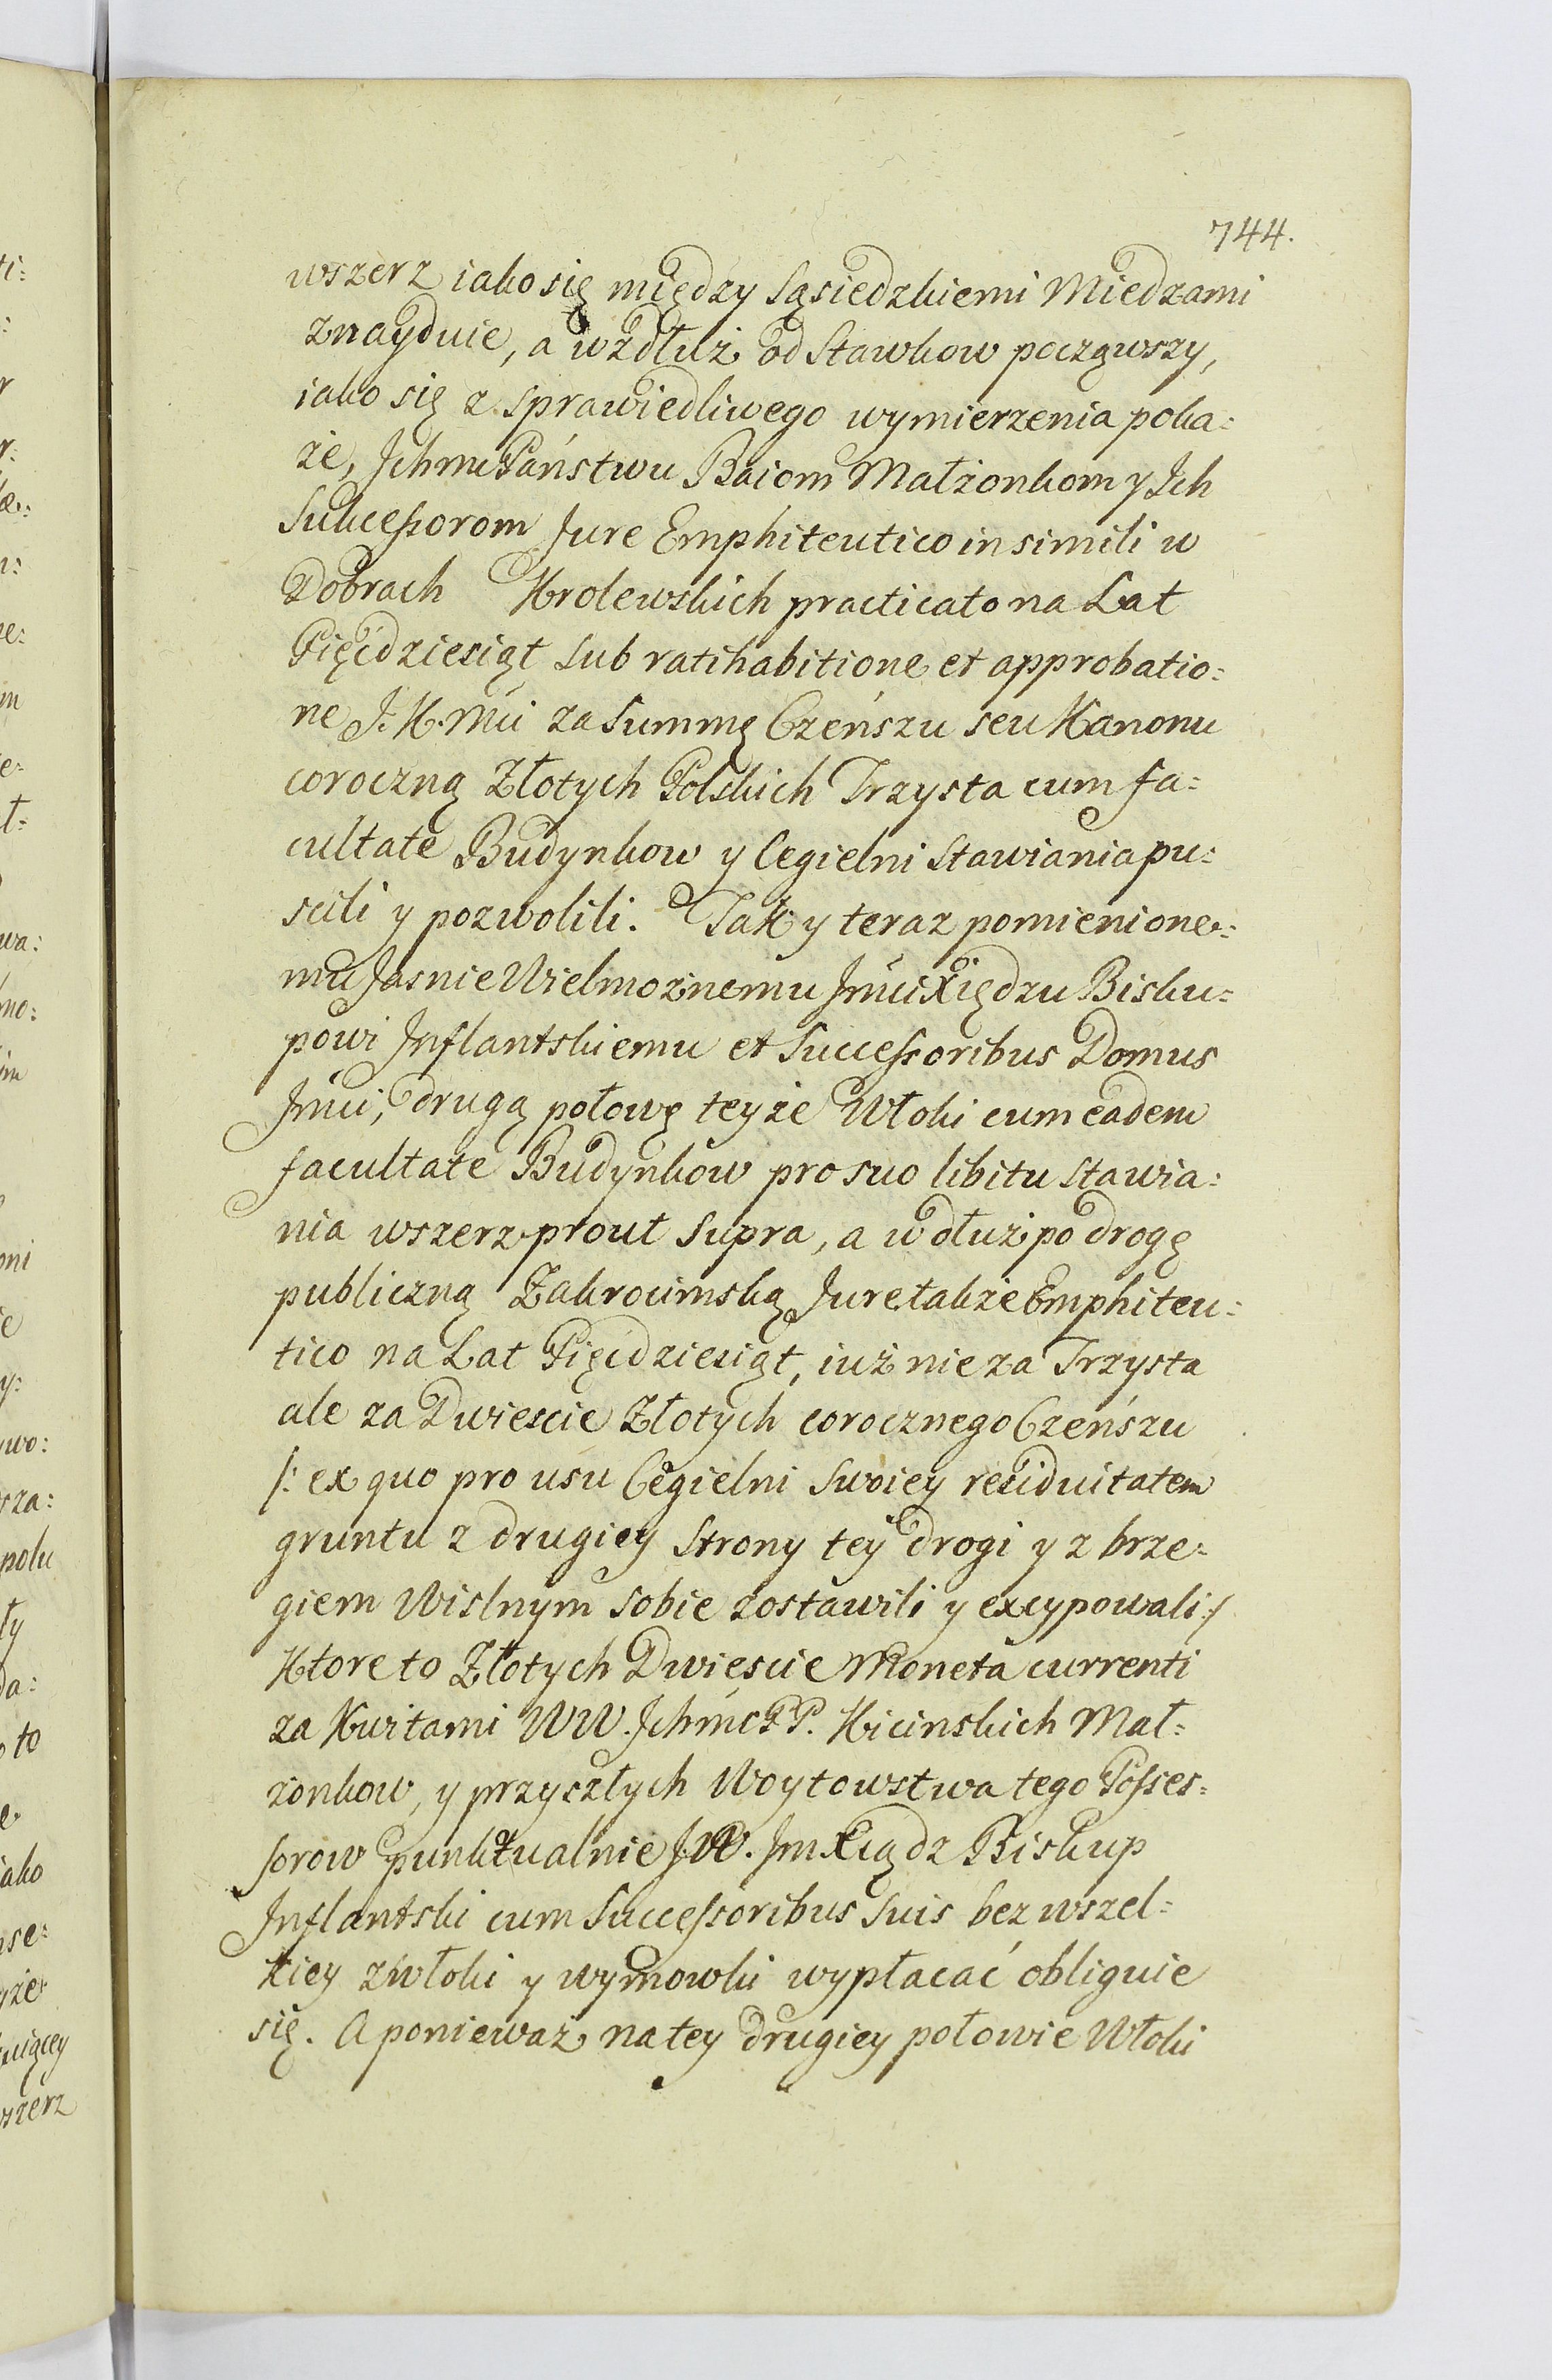 744.
wszerz iako się między Sąsiedzkiemi Miedzami
znayduie, a wzdłuż od Stawkow począwszy,
iako się z sprawiedliwego wymierzenia poka:
że, Jchmc Państwu Baiom Małżonkom y Jch
Sukcessorom Jure Emphiteutico in simili w
Dobrach Krolewskich practicato na Lat
Pięćdziesiąt sub ratihabitione et approbatio:
ne J. K. Mći za Summę Czeńszu seu Kanonu
coroczną Złotych Polskich Trzysta cum fa:
cultate Budynkow y Cegielni stawiania pu:
scili y pozwolili. Tak y teraz pomienione:
mu Jasnie Wielmożnemu Jmći Xiędzu Bisku:
powi Jnflantskiemu et Successoribus Domus
Jmći, drugą połowę teyże Włoki cum eadem
facultate Budynkow pro suo libitu stawia:
nia wszerz prout supra, a w dłuż po drogę
publiczną Zakrocimską Jure także Emphiteu:
tico na Lat Pięćdziesiąt, iuż nie za Trzysta
ale za Dwiescie Złotych corocznego Czeńszu
/: ex quo pro usu Cegielni Swoiey residuitatem
gruntu z drugiey strony tey drogi y z brze:
giem Wislnym sobie zostawili y excypowali :/
Ktore to Złotych Dwiescie Moneta currenti
za Kwitami WW. Jchmć PP. Kicinskich Mał:
żonkow, y przyszłych Woytowstwa tego Posses:
sorow punktualnie J.W. Jm Xiądz Biskup
Jnflantski cum Successoribus suis bez wszel:
kiey zwłoki y wymowki wypłacać obliguie
się. A ponieważ na tey drugiey połowie Włoki